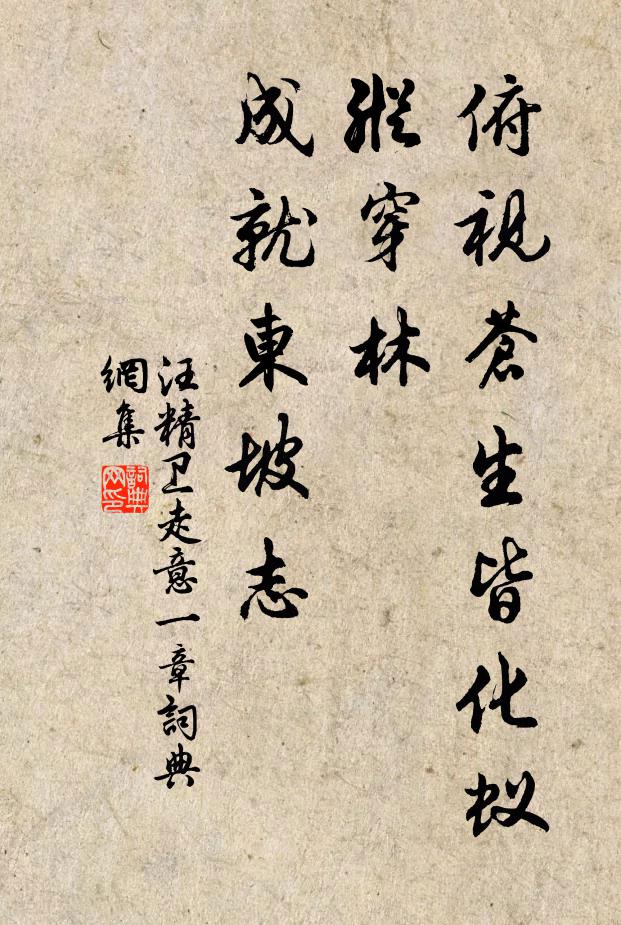 俯視蒼生皆化蚁
縱穿林
成就東坡志
汪精卫走意一章詞典
網集
詞典
网印